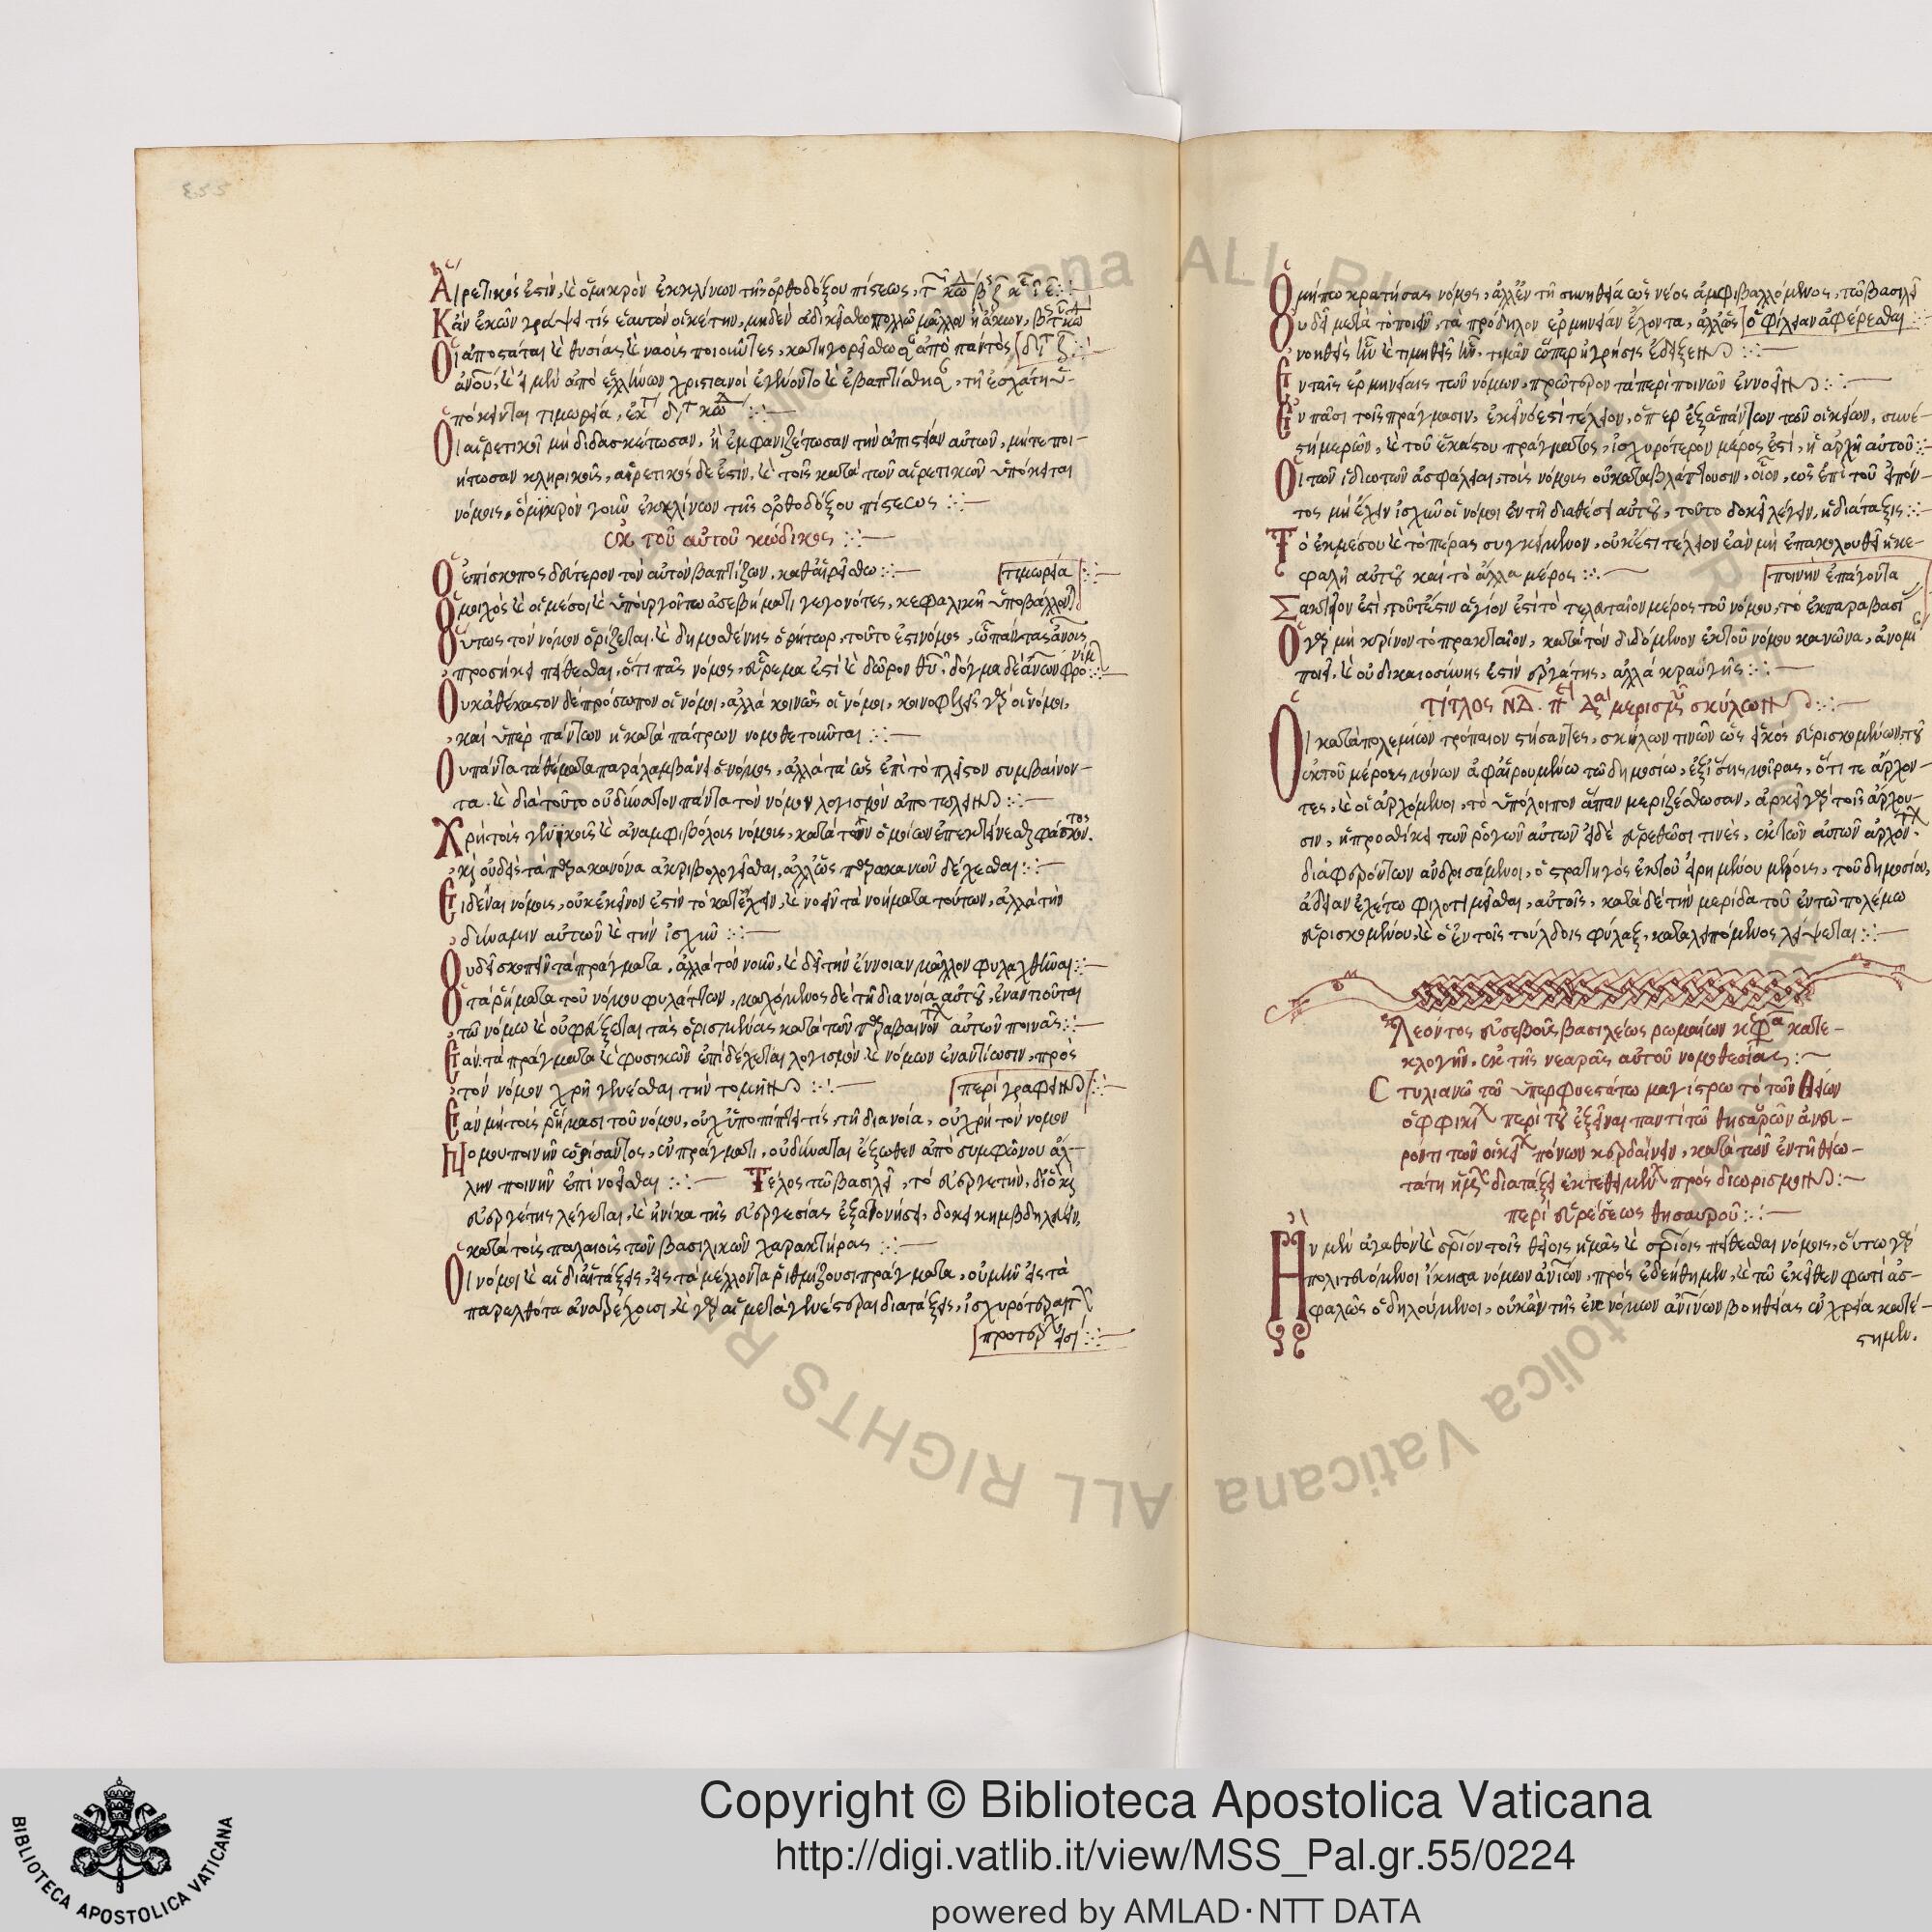 Αἱρετικός ἐστιν, καὶ ὁ μικρὸν ἐκκλίνων τῆς ὀρθοδόξου πίστεως
Κἂν ἑκὼν γράψει τίς ἑαυτὸν οἰκέτην, μηδὲν ἀδικείσθω πολλῶ μᾶλλον ἢ ἄκων
Οἱ ἀποστάται καὶ θυσίας καὶ ναοὺς ποιοῦντες, κατηγορείσθωσαν ἀπὸ παντὸς
ἀνου, καὶ εἰ μὲν ἀπὸ ἑλλήνων χριστιανοὶ ἐγένοντο καὶ ἐβαπτίσθησαν, τῆ ἐσχάτη ὑ-
πόκεινται τιμωρία
Οἱ αἱρετικοὶ μὴ διδασκέτωσαν, ἢ ἐμφανιζέτωσαν τὴν ἀπιστίαν αὐτῶν, μήτε ποι-
ήτωσαν κληρικοῦς, αἱρετικὸς δέ ἐστιν, καὶ τοῖς κατὰ τῶν αἱρετικῶν ὑπόκειται
νόμοις, ὁ μικρὸν γοῦν ἐκκλίνων τῆς ὀρθοδόξου πίστεως
ἐκ τοῦ αὐτοῦ κώδικος
Ὁ ἐπίσκοπος δεύτερον τὸν αὐτὸν βαπτίζων, καθαιρείσθω
τιμωρία
Ὁ μοιχὸς καὶ οἱ μέσοι καὶ ὑπουργοὶ τῶ ἀσεβήματι γεγονότες, κεφαλικῆ ὑποβάλλονται
Οὕτως τὸν νόμον ὁρίζεται. καὶ δημοσθένης ὁ ῥήτωρ, τοῦτο ἐστι νόμος, ὧ πάντας ἀνοις
προσήκει πείθεσθαι, ὅτι πᾶς νόμος, εὕρεμα ἐστὶ καὶ δῶρον θυ, δόγμα δὲ ἀνων φρονίμων
Οὐ καθέκαστον δὲ πρόσωπον οἱ νόμοι, ἀλλὰ κοινῶς οἱ νόμοι, κοινοφελεῖς γὰρ οἱ νόμοι,
καὶ ὑπὲρ πάντων ἢ κατὰ πάτρων νομοθετοῦνται
Οὐ πάντα τὰ θέματα παραλαμβάνει ὁ νόμος, ἀλλὰ τὰ ὡς ἐπὶ τὸ πλεῖστον συμβαίνον-
τα. καὶ διὰ τοῦτο οὐ δύναιτον πάντα τὸν νόμον λογισμὸν ἀποτελεῖν
Εἰδέναι νόμους, οὐκ ἐκεῖνον ἐστὶν τὸ κατέχειν, καὶ νοεῖν τὰ νοήματα τούτων, ἀλλὰ τὴν
δύναμιν αὐτῶν καὶ τὴν ἰσχῦν
Οὐ δεῖ σκοπεῖν τὰ πράγματα, ἀλλὰ τὸν νοῦν, καὶ δεῖ τὴν ἔννοιαν μᾶλλον φυλαχθῆναι
Ὁ τὰ ῥήματα τοῦ νόμου φυλάττων, κακόμενος δὲ τῆ διανοία αὐτοῦ, ἐναντιοῦται
τῶ νόμω καὶ οὐ φεύξεται τὰς ὁρισμένας κατὰ τῶν παραβαινόντων αὐτῶν ποινάς
Ἐὰν τὰ πράγματα καὶ φυσικῶν ἐπιδέχεται λογισμὸν καὶ νόμων ἐναντίωσιν, πρὸς
τὸν νόμον χρὴ γενέσθαι τὴν τομὴν
περιγραφεῖν
Ἐὰν μὴ τοῖς ῥήμασι τοῦ νόμου, οὐχ ὑποπίπτει τίς, τῆ διανοία, οὐ χρὴ τὸν νόμον
Νόμου ποινὴν ὡρίσαντος, ἐν πράγματι, οὐ δύναται ἔξωθεν ἀπὸ συμφώνου ἄλ-
λην ποινὴν ἐπινοεῖσθαι Τέλος τῶ βασιλεῖ, τὸ εὐεργετεῖν, διὸ καὶ
εὐεργέτης λέγεται, καὶ ἡνίκα τῆς εὐεργεσίας ἐξατονήσει, δοκεῖ κιβδηλεύειν,
κατὰ τοὺς παλαιοὺς τῶν βασιλικῶν χαρακτήρας
Οἱ νόμοι καὶ αἱ διατάξεις, εἰς τὰ μέλλοντα ῥιθμίζουσι πράγματα, οὐ μὴν εἰς τὰ
παρελθότα ἀνατρέχουσι, καὶ γὰρ αἱ μεταγενέστεραι διατάξεις, ἰσχυρότεραι τῶν
προτέρων εἰσὶ
Ὁ μήπω κρατήσας νόμος, ἀλλ' ἐν τῆ συνηθεία ὡς νέος ἀμφιβαλλόμενος, τῶ βασιλεῖ
Οὐ δεῖ μετὰ τὸ ποιεῖν, τὰ πρόδηλον ἑρμηνείαν ἔχοντα, ἀλλῶς ὀφείλειαν ἀφέρεσθαι
νοηθεὶς
Ἐν ταῖς ἑρμηνείαις τῶν νόμων, πρῶτερον τὰ περὶ ποινῶν ἐννοεῖν
Ἐν πᾶσι τοῖς πράγμασιν, ἐκεῖνό ἐστι τέλειον, ὅπερ ἐξ ἁπάντων τῶν οἰκείων, συνέ-
στη μερῶν, καὶ τοῦ ἑκάστου πράγματος, ἰσχυρότερον μέρος ἐστὶ, ἡ ἀρχὴ αὐτοῦ
Οἱ τῶν ἰδιωτῶν ἀσφάλειαι, τοὺς νόμους οὐ καταβλάπτουσιν, οἷον, ὡς ἐπὶ τοῦ εἰπόν-
τος μὴ ἔχειν ἰσχὺν οἱ νόμοι ἐν τῆ διαθέσει αὐτοῦ, τοῦτο δοκεῖ λέγειν, ἡ διάταξις
Τὸ ἐκ μέσου καὶ τὸ πέρας συγκείμενον, οὐκ ἔστι τέλειον ἐὰν μὴ ἐπακολουθεῖ ἡ κε-
φαλὴ αὐτοῦ καὶ τὸ ἄλλα μέρος
ποινὴν ἐπάγοντα
Σακτίον ἐστὶ, τοῦτέστιν ἁγίον ἐστὶ τὸ τελευταῖον μέρος τοῦ νόμου, τὸ ἐκ παραβάσεως
Ὁ γὰρ μὴ κρίνον τὸ πρακταῖον, κατὰ τὸν διδόμενον ἐκ τοῦ νόμου κανῶνα, ἀνομί
ποιεῖ, καὶ οὐ δικαιοσύνης ἐστὶν ἐργάτης, ἀλλὰ κραυγῆς
τίτλος ΝΔ. περὶ διαμερισμοῦ σκύλων
Οἱ κατὰ πολεμίων τρόπαιον στήσαντες, σκύλων τινῶν ὡς εἰκὸς εὑρισκομένων, τοῦ
ἑκτοῦ μέρους μόνων ἀφαιρουμένω τῶ δημοσίω, ἐξίσης μοίρας, ὅτι τε ἄρχον-
τες, καὶ οἱ ἀρχόμενοι, τὸ ὑπόλοιπον ἅπαν μεριζέσθωσαν, ἀρκεῖ γὰρ τοῖς ἄρχου-
σιν, ἡ προσθήκη τῶν ῥογῶν αὐτῶν εἰ δὲ εὑρεθῶσι τινὲς, ἐκ τῶν αὐτῶν ἀρχόντων
διαφερόντων ἀνδρισάμενοι, ὁ στρατηγὸς ἐκ τοῦ εἰρημένου μέρους, τοῦ δημοσίου,
ἄδειαν ἐχέτω φιλοτιμεῖσθαι, αὐτοῖς, κατὰ δὲ τὴν μερίδα τοῦ ἐν τῶ πολέμω
εὑρισκομένου, καὶ ὁ ἐν τοῖς τούλδοις φύλαξ, καταλειπόμενος λείψεται
Λεόντος εὐσεβοῦς βασιλέως ρωμαίων κεφάλαια κατε-
κλογὴν, ἐκ τῆς νεαρᾶς αὐτοῦ νομοθεσίας
Στυλιανῶ τῶ ὑπερφυεστάτω μαγίστρω τὸ τῶν θείων
ὀφφικίων περὶ τοῦ ἐξεῖναι παντὶ τῶ θησαυρῶν ἀνευ-
ρόντι τῶν οἰκείων πόνων κερδαίνειν, κατὰ τῶν ἐν τῆ θειω-
τάτη ἡμῶν διατάξει ἐκτεθειμένων πρὸς διωρισμὸν
περὶ εὑρέσεως θησαυροῦ
Ἦν μὲν ἀγαθὸν καὶ σωτήριον τοῖς θείοις ἡμᾶς καὶ σωτηρίοις πείθεσθαι νόμοις, οὕτω γὰρ
πολιτευόμενοι ἥκιστα νόμων ἀνθρωπίνων, προσεδεήθημεν, καὶ τῶ ἐκεῖθεν φωτὶ ἀσ-
φαλῶς ὁδηλούμενοι, οὐκ ἂν τῆς ἐκ νόμων ἀνθρωπίνων βοηθείας ἐν χρεία κατέ-
στημεν.
Copyright © Biblioteca Apostolica Vaticana
http://digi.vatlib.it/view/MSS_Pal.gr.55/0224
powered by AMLAD·NTT DATA
BIBLIOTECA APOSTOLICA VATICANA